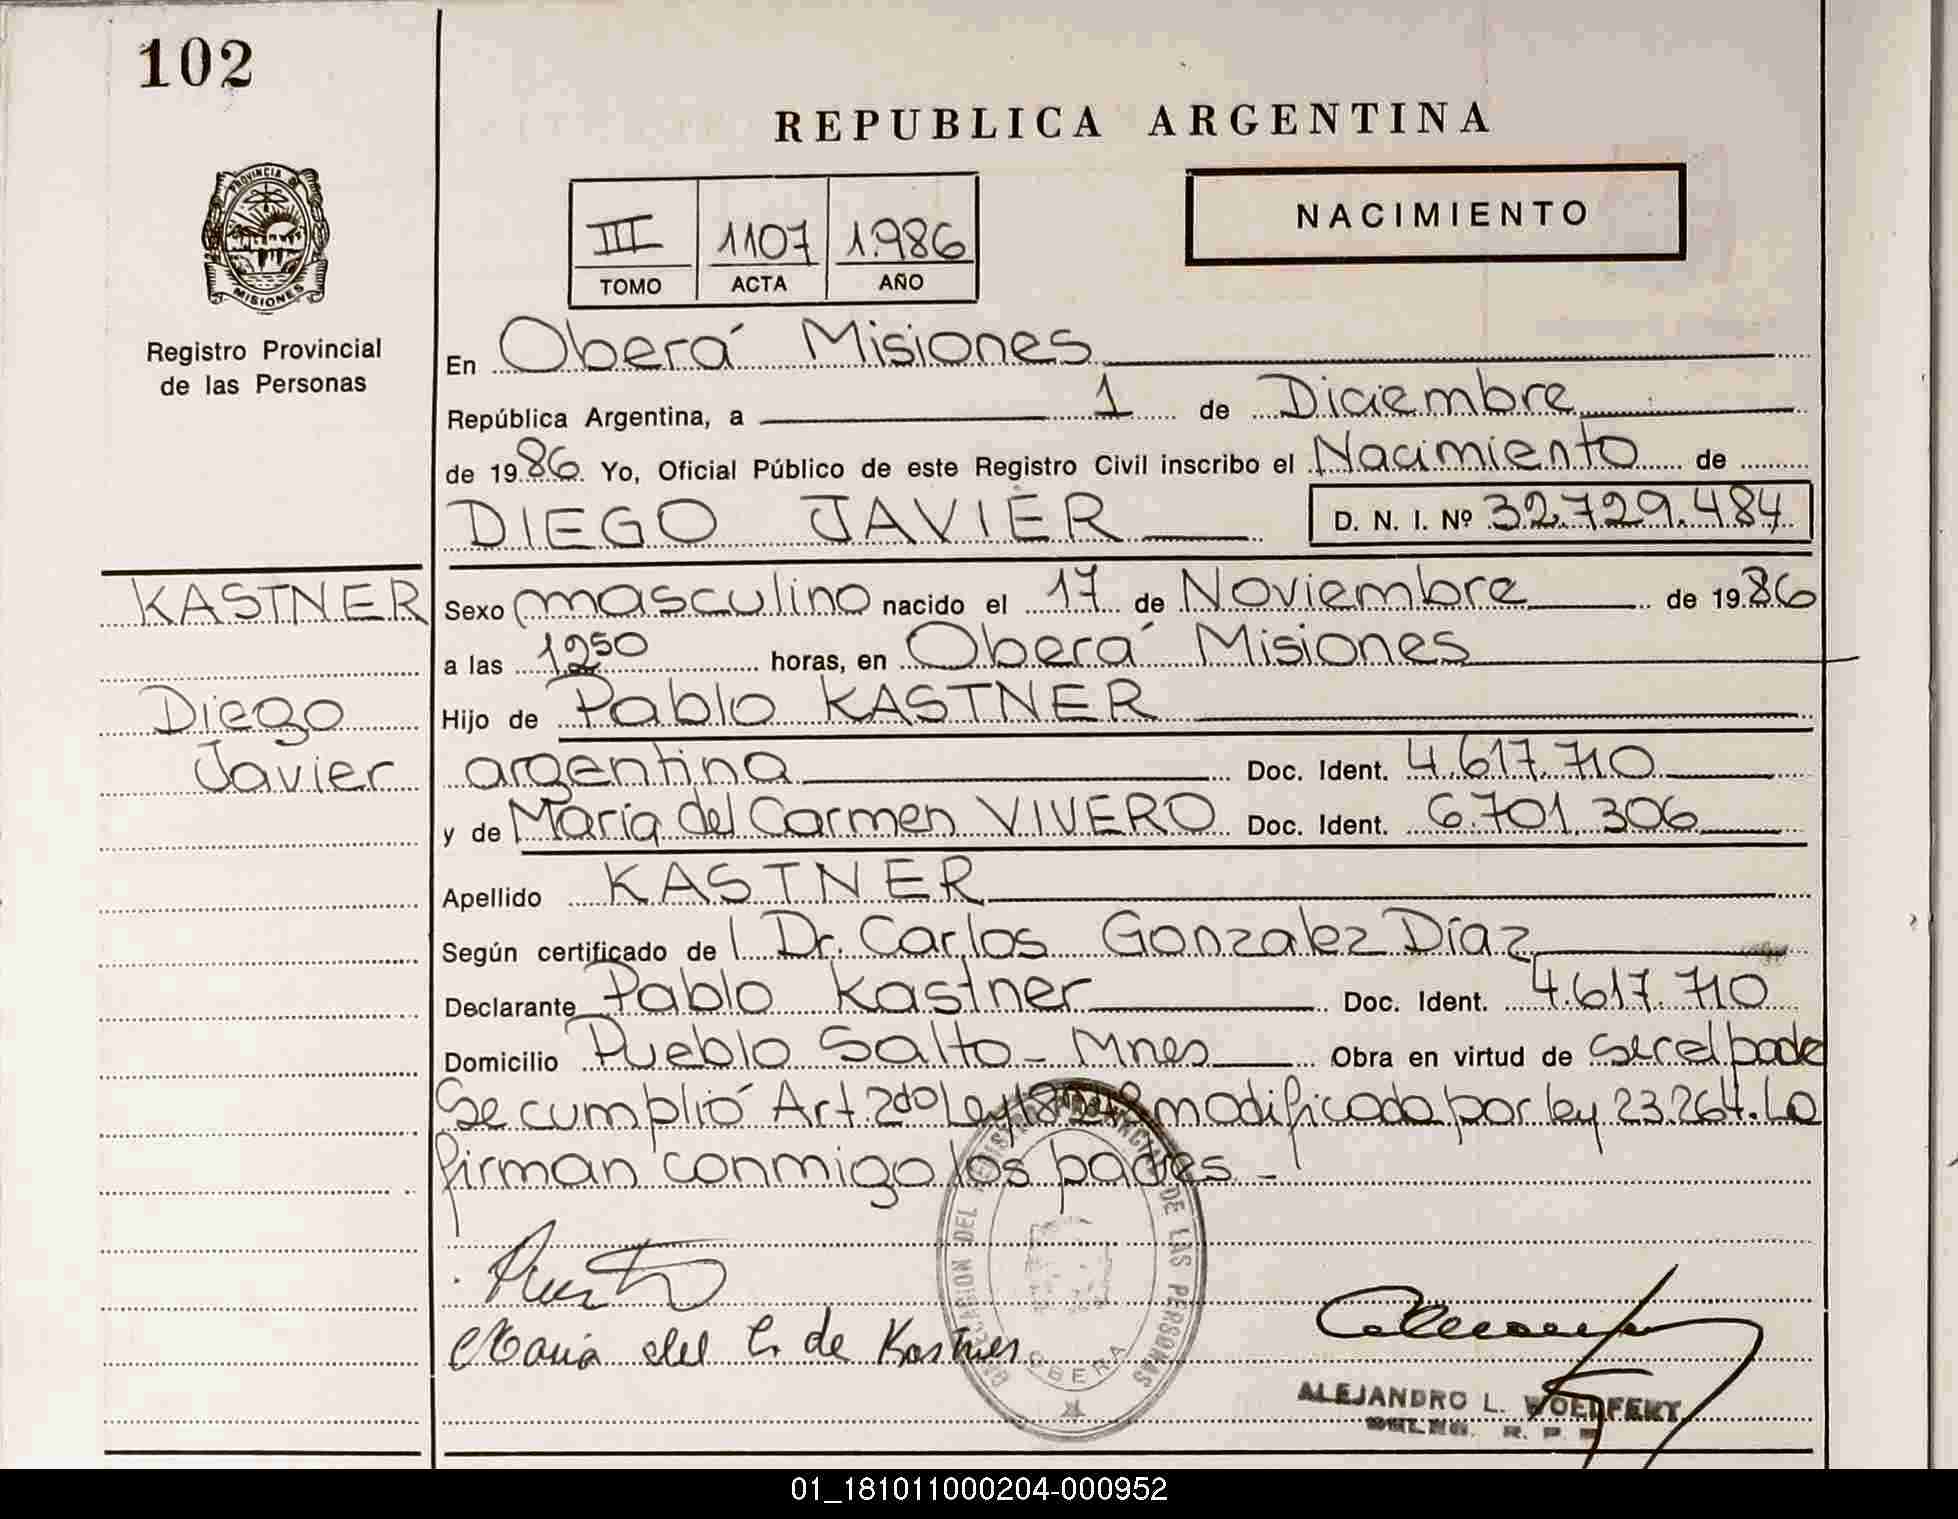 102
REPUBLICA ARGENTINA
PROVINCIA DE
MISIONES
Registro Provincial
de las Personas
III 1107 1.986
TOMO ACTA AÑO
NACIMIENTO
En Oberá Misiones
República Argentina, a 1 de Diciembre
de 1986 Yo, Oficial Público de este Registro Civil inscribo el Nacimiento de
DIEGO JAVIER D. N. I. Nº 32.729.484
KASTNER
Diego
Javier
Sexo masculino nacido el 17 de Noviembre de 1986
a las 1250 horas, en Oberá Misiones
Hijo de Pablo KASTNER
argentina Doc. Ident. 4.617.710
y de María del Carmen VIVERO Doc. Ident. 6.701.306
Apellido KASTNER
Según certificado de l Dr. Carlos Gonzalez Díaz
Declarante Pablo Kastner Doc. Ident. 4.617.710
Domicilio Pueblo Salto - Mnes Obra en virtud de ser el padre
Se cumplió Art. 2do Ley modificada por ley 23.264. La
firman conmigo los padres -
DEL REGISTRO PROVINCIAL DE LAS PERSONAS
OBERA
María del C. de Kastner
ALEJANDRO L.
R. P. P.
01_181011000204-000952